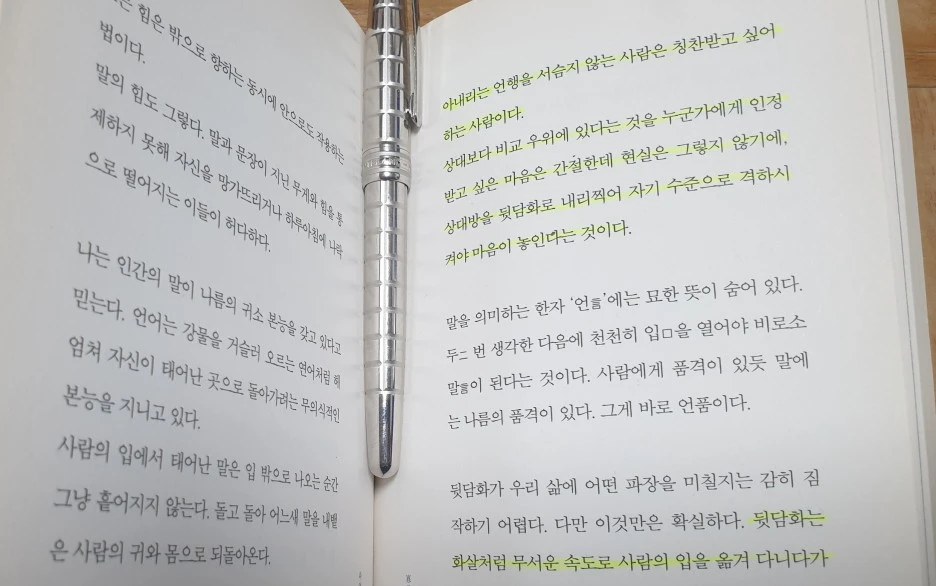 는 힘은 밖으로 향하는 동시에 안으로도 작용하는
법이다.
말의 힘도 그렇다. 말과 문장이 지닌 무게와 힘을 통
제하지 못해 자신을 망가뜨리거나 하루아침에 나락
으로 떨어지는 이들이 허다하다.
나는 인간의 말이 나름의 귀소 본능을 갖고 있다고
믿는다. 언어는 강물을 거슬러 오르는 연어처럼 헤
엄쳐 자신이 태어난 곳으로 돌아가려는 무의식적인
본능을 지니고 있다.
사람의 입에서 태어난 말은 입 밖으로 나오는 순간
그냥 흩어지지 않는다. 돌고 돌아 어느새 말을 내뱉
은 사람의 귀와 몸으로 되돌아온다.
아내리는 언행을 서슴지 않는 사람은 칭찬받고 싶어
하는 사람이다.
상대보다 비교 우위에 있다는 것을 누군가에게 인정
받고 싶은 마음은 간절한데 현실은 그렇지 않기에,
상대방을 뒷담화로 내리찍어 자기 수준으로 격하시
켜야 마음이 놓인다는 것이다.
말을 의미하는 한자 ‘언言’에는 묘한 뜻이 숨어 있다.
두二 번 생각한 다음에 천천히 입口을 열어야 비로소
말言이 된다는 것이다. 사람에게 품격이 있듯 말에
는 나름의 품격이 있다. 그게 바로 언품이다.
뒷담화가 우리 삶에 어떤 파장을 미칠지는 감히 짐
작하기 어렵다. 다만 이것만은 확실하다. 뒷담화는
화살처럼 무서운 속도로 사람의 입을 옮겨 다니다가